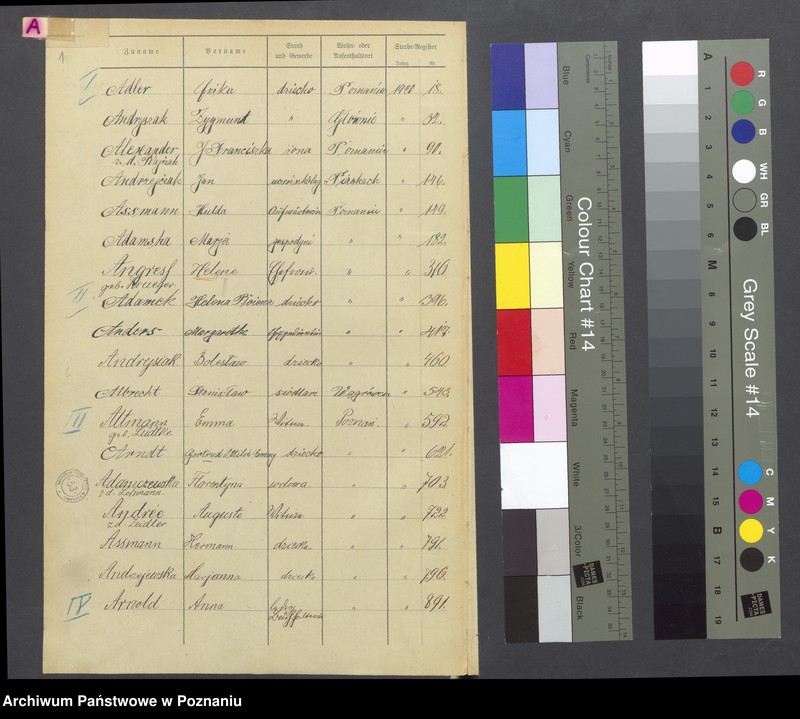 A
1
Zuname Vorname Stand und Gewerbe Wohn- oder Aufenthaltsort Sterbe-Register
Jahrg. Nr.
I
Adler Erika dziecko Poznaniu 1920 18.
Andrzejak Zygmund " Głównie " 52.
Alexander Franciszka żona Poznaniu " 90.
z d.
Andrzejczak Jan Piaskach " 146.
Assmann Hulda Poznaniu " 149.
Adamska Marja gospodyni " " 182.
Angress Helene " " 316
geb. Krueger
II
Adamek Helena dziecko " " 396.
Anders Margarethe " " 417.
Andrysiak Bolesław dziecko " " 460
Albrecht Stanisław siodlarz Wągrówiec " 543.
III
Altmann Emma Witwe Poznań " 592
geb. Liedtke
Arndt Gertrud Ottilie Emmy dziecko " " 621.
Adamczewska Florentyna wdowa " " 703
z d.
Andree Auguste Witwe " " 722.
z d. Zeidler
Assmann Hermann dziecko " " 791.
Andrzejewska Marjanna dziecko " " 796.
IV
Arnold Anna " " 891.
Colour Chart #14
Blue
Cyan
Green
Yellow
Red
Magenta
White
3/Color
Black
Inches
Centimetres
DANES PICTA
Grey Scale #14
A 1 2 3 4 5 6 M 8 9 10 11 12 13 14 15 B 17 18 19
R G B WH GR BL
C M Y K
DANES PICTA
Archiwum Państwowe w Poznaniu